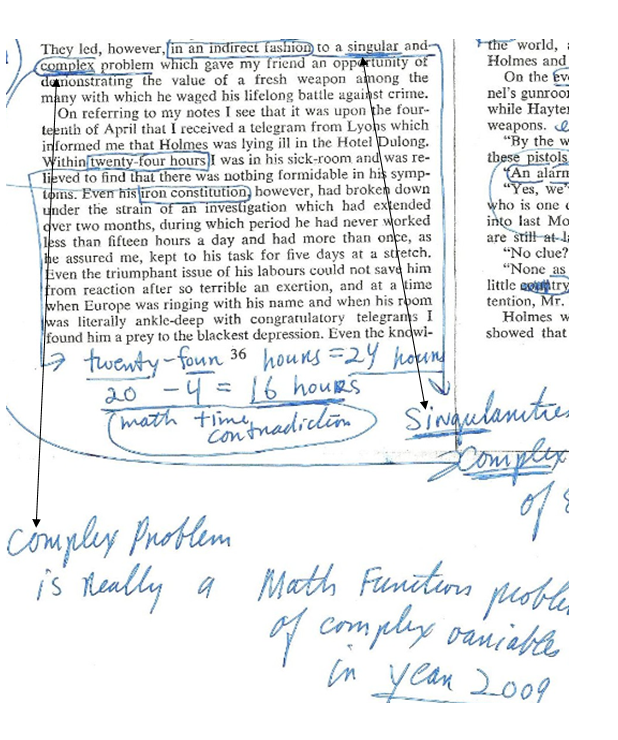 They led, however, in an indirect fashion to a singular and
complex problem which gave my friend an opportunity of
demonstrating the value of a fresh weapon among the
many with which he waged his lifelong battle against crime.
On referring to my notes I see that it was upon the four-
teenth of April that I received a telegram from Lyons which
informed me that Holmes was lying ill in the Hotel Dulong.
Within twenty-four hours I was in his sick-room and was re-
lieved to find that there was nothing formidable in his symp-
toms. Even his iron constitution, however, had broken down
under the strain of an investigation which had extended
over two months, during which period he had never worked
less than fifteen hours a day and had more than once, as
he assured me, kept to his task for five days at a stretch.
Even the triumphant issue of his labours could not save him
from reaction after so terrible an exertion, and at a time
when Europe was ringing with his name and when his room
was literally ankle-deep with congratulatory telegrams I
found him a prey to the blackest depression. Even the knowl-
36
twenty-four hours = 24 hours
20 - 4 = 16 hours
math time
contradiction
the world,
Holmes and
On the
nel's gunroo
while Hayte
weapons.
"By the w
these pistols
"An alarm
"Yes, we'
who is one
into last Mo
are still at l
"No clue?
"None as
little country
tention, Mr.
Holmes w
showed that
Singularities
Complex
of
Complex Problem
is really a Math Function proble
of complex variables
in year 2009